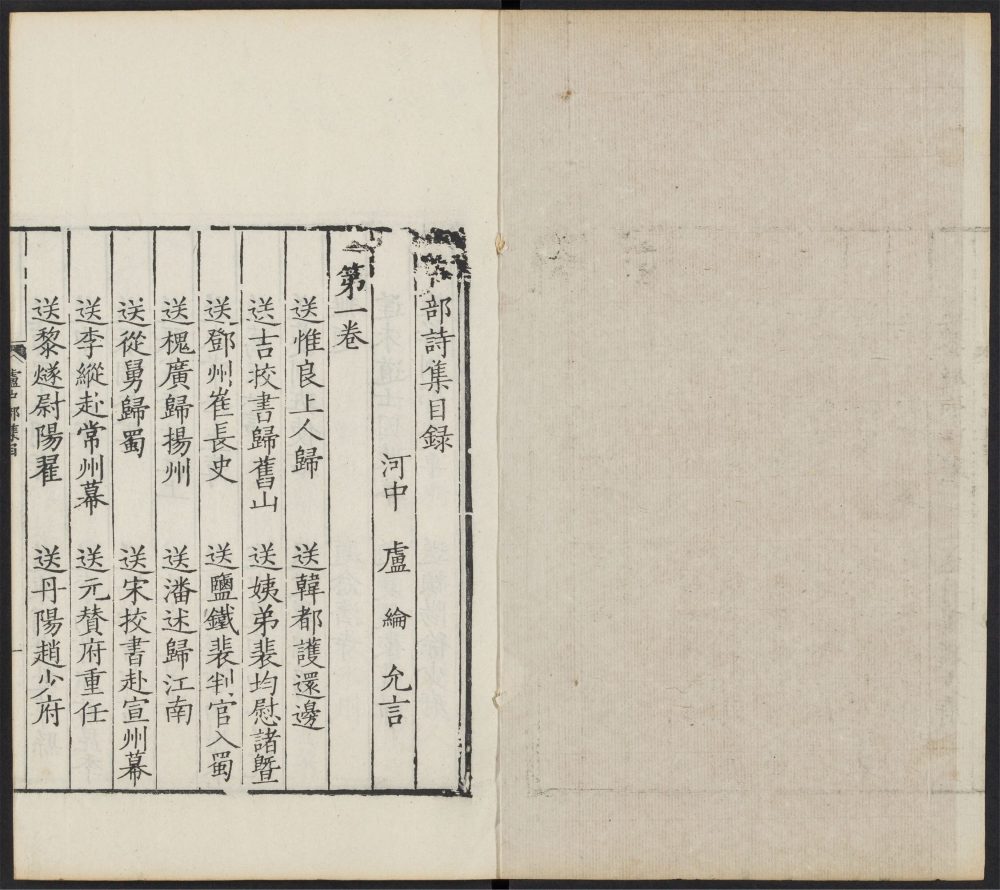 部詩集目録
河中 盧綸 允言
第一卷
送惟良上人歸 送韓都護還邊
送吉挍書歸舊山 送姨弟裴均慰諸曁
送鄧州崔長史 送鹽鐵裴判官入蜀
送槐廣歸揚州 送潘述歸江南
送從舅歸蜀 送宋挍書赴宣州幕
送李縱赴常州幕 送元贊府重任
送黎燧尉陽翟 送丹陽趙少府
盧戸部集目
一